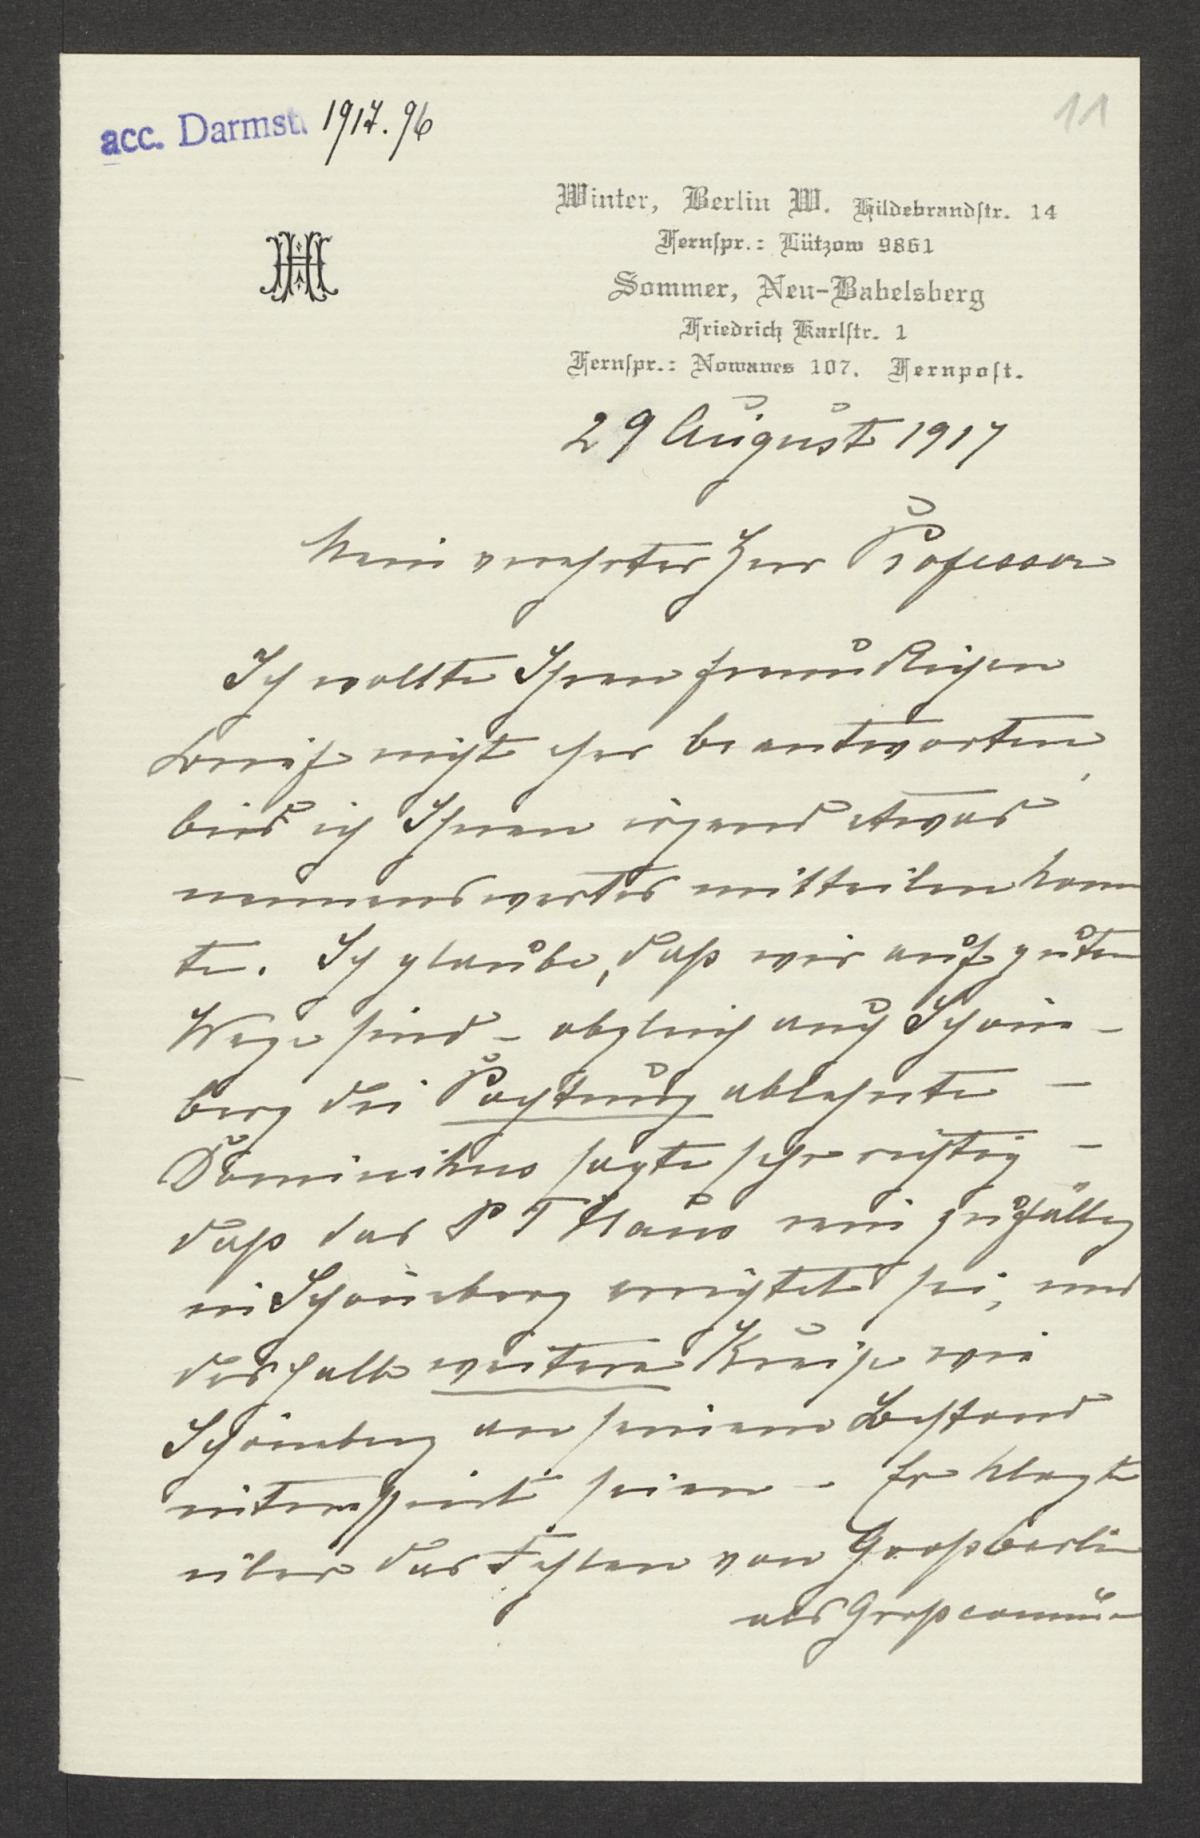 acc. Darmst. 1917.96
11
Winter, Berlin W. Hildebrandstr. 14
Fernspr.: Lützow 9861
HH
Sommer, Neu-Babelsberg
Friedrich Karlstr. 1
Fernspr.: Nowawes 107. Fernpost.
29 August 1917
Mein verehrter Herr Professor
Ich wollte Ihren freundlichen
Brief nicht eher beantworten,
bis ich Ihnen irgend etwas
nennenswertes mitteilen konn
te. Ich glaube, daß wir auf guten
Wege sind – obgleich auch Schöne-
berg die Pachtung ablehnte –
Dominikus sagte sehr richtig –
daß das P T Haus rein zufällig
in Schöneberg errichtet sei, und
deshalb weitere Kreise wie
Schöneberg an seinem Bestand
interessirt seien – Er klagte
über das Fehlen von Großberlin
als Großcommu-